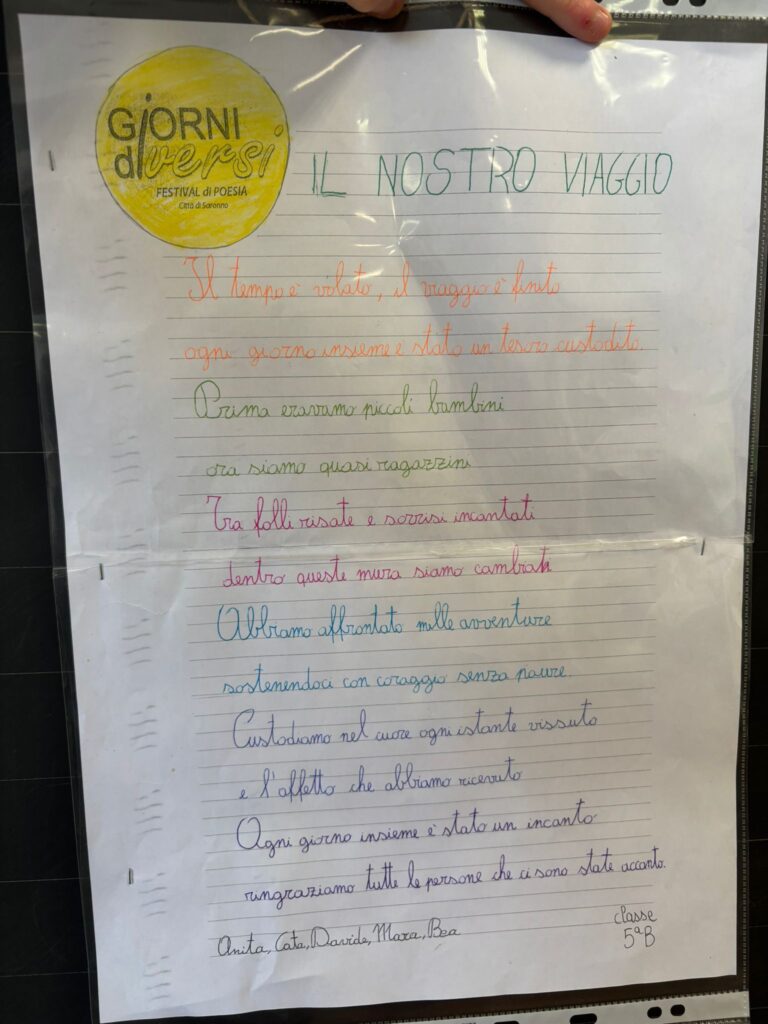 GiORNI
diversi
FESTIVAL di POESIA
Città di Saronno
IL NOSTRO VIAGGIO
Il tempo è volato, il viaggio è finito
ogni giorno insieme è stato un tesoro custodito.
Prima eravamo piccoli bambini
ora siamo quasi ragazzini
Tra folli risate e sorrisi incantati
dentro queste mura siamo cambiati
Abbiamo affrontato mille avventure
sostenendoci con coraggio senza paure.
Custodiamo nel cuore ogni istante vissuto
e l'affetto che abbiamo ricevuto
Ogni giorno insieme è stato un incanto
ringraziamo tutte le persone che ci sono state accanto.
Anita, Cata, Davide, Mara, Bea
classe
5ªB